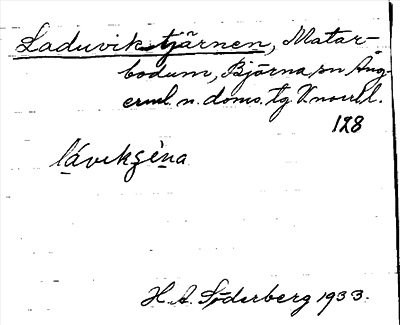 Laduvikstjärnen, Matar-
bodum, Björna sn Ång-
erml. n. doms. tg. V.norrl.
128
láviksèna
H. A. Söderberg 1933.